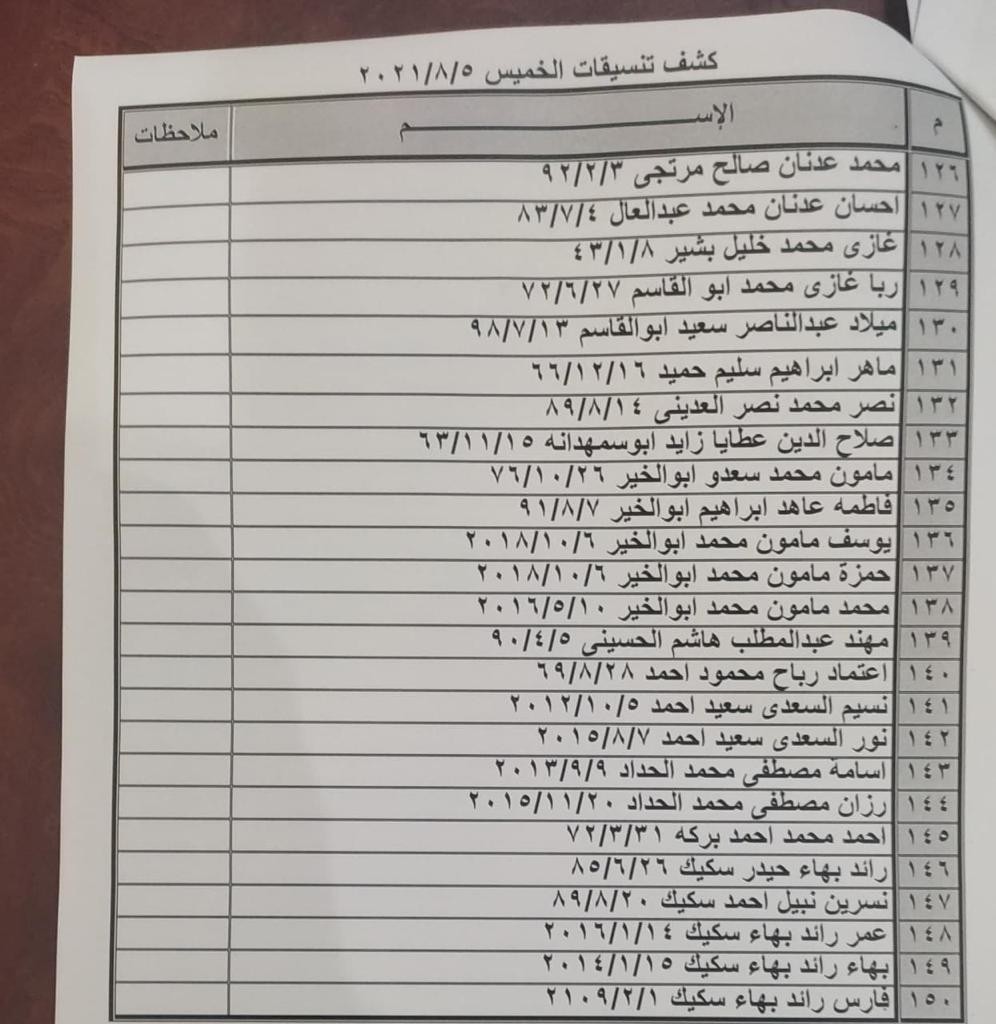 كشف تنسيقات الخميس ٢٠٢١/٨/٥
م الإســـــم ملاحظات
١٢٦ محمد عدنان صالح مرتجى ٩٢/٢/٣
١٢٧ احسان عدنان محمد عبدالعال ٨٣/٧/٤
١٢٨ غازى محمد خليل بشير ٤٣/١/٨
١٢٩ ربا غازى محمد ابو القاسم ٧٢/٦/٢٧
١٣٠ ميلاد عبدالناصر سعيد ابوالقاسم ٩٨/٧/١٣
١٣١ ماهر ابراهيم سليم حميد ٦٦/١٢/١٦
١٣٢ نصر محمد نصر العدينى ٨٩/٨/١٤
١٣٣ صلاح الدين عطايا زايد ابوسمهدانه ٦٣/١١/١٥
١٣٤ مامون محمد سعدو ابوالخير ٧٦/١٠/٢٦
١٣٥ فاطمه عاهد ابراهيم ابوالخير ٩١/٨/٧
١٣٦ يوسف مامون محمد ابوالخير ٢٠١٨/١٠/٦
١٣٧ حمزة مامون محمد ابوالخير ٢٠١٨/١٠/٦
١٣٨ محمد مامون محمد ابوالخير ٢٠١٦/٥/١٠
١٣٩ مهند عبدالمطلب هاشم الحسينى ٩٠/٤/٥
١٤٠ اعتماد رباح محمود احمد ٦٩/٨/٢٨
١٤١ نسيم السعدى سعيد احمد ٢٠١٢/١٠/٥
١٤٢ نور السعدى سعيد احمد ٢٠١٥/٨/٧
١٤٣ اسامة مصطفى محمد الحداد ٢٠١٣/٩/٩
١٤٤ رزان مصطفى محمد الحداد ٢٠١٥/١١/٢٠
١٤٥ احمد محمد احمد بركه ٧٢/٣/٣١
١٤٦ رائد بهاء حيدر سكيك ٨٥/٦/٢٦
١٤٧ نسرين نبيل احمد سكيك ٨٩/٨/٢٠
١٤٨ عمر رائد بهاء سكيك ٢٠١٦/١/١٤
١٤٩ بهاء رائد بهاء سكيك ٢٠١٤/١/١٥
١٥٠ فارس رائد بهاء سكيك ٢١٠٩/٢/١